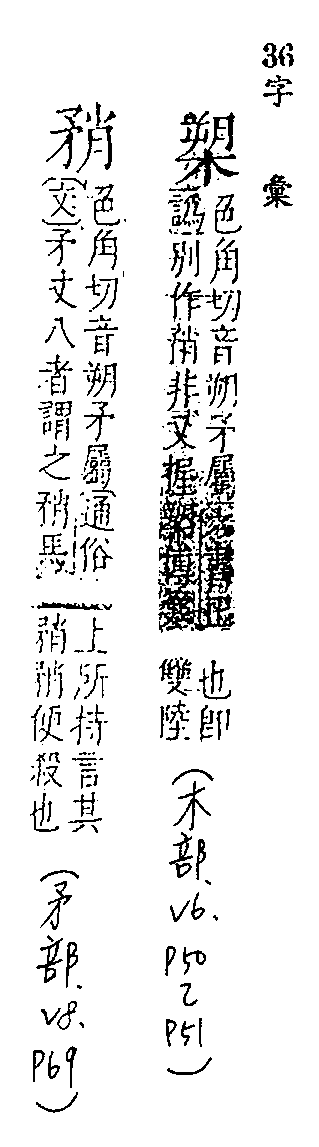 36字 彙
槊
色角切音朔矛屬
譌別作矟非又握
也即
雙陸
(木部、V6、P50乙P51)
矟
色角切音朔矛屬通俗
文矛丈八者謂之矟馬
上所持言其
矟矟便殺也
(矛部、V8、P69)